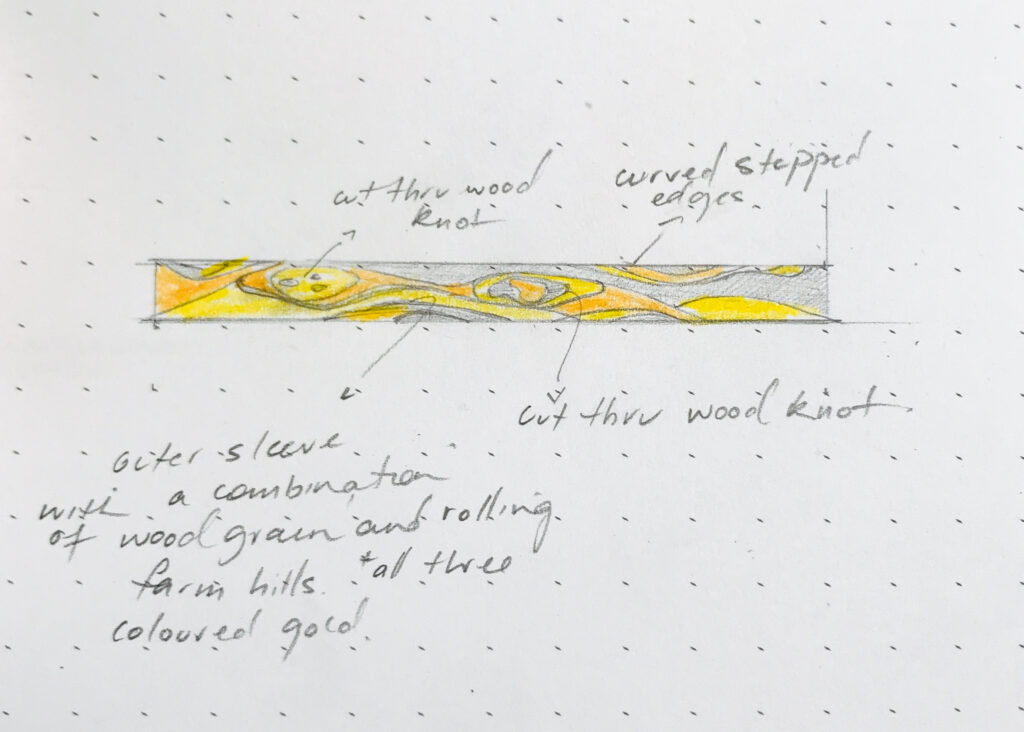 cut thru wood
knot
curved stepped
edges
cut thru wood knot
outer sleeve
with a combination
of wood grain and rolling
farm hills. *all three
coloured gold.